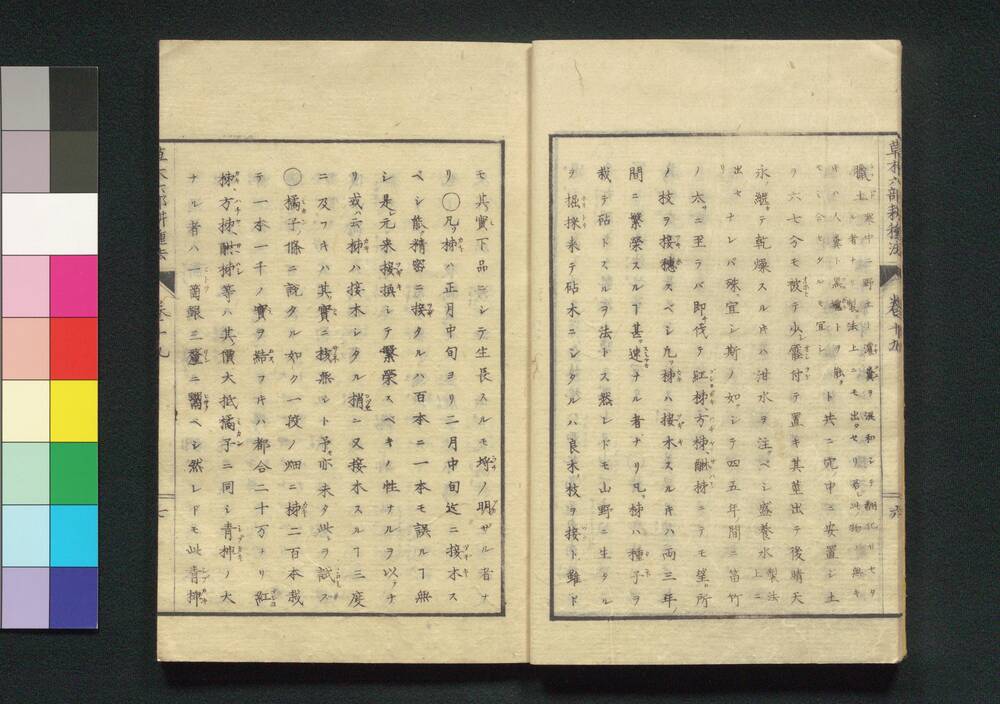 草木六部耕種法 卷十九 六
臘土ト寒中ニ野土ニ薄糞ヲ澆和シテ和セタ
ル者ナリ製法上ニモ出セリ若此物無キ
キハ人糞ト黒壚ト共ニ宂中ニ安置シ土
モシ合セタルモ宜シ
ヲ六七分モ被テ少シ霑付テ置キ其莖出テ後晴天
永ク繼テ乾燥スルキハ泔水ヲ注ベシ盛養水製法上ニ
出セリナレバ殊宜シ斯ノ如シテ四五年間ニ笛竹
ノ太ニ至ラバ即伐テ紅柹方柹醂柹ニテモ望所
ノ枝ヲ接穗スベシ凡柹ハ接木スルキハ兩三年ノ
間ニ繁榮スルヿ甚速ナル者ナリ凡柹ハ種子ヲ
栽テ砧トスルヲ法トス然レドモ山野ニ生タル
ヲ掘採來テ砧木ニシタルハ良木ノ枝ヲ接ト雖ド
モ其實下品ニシテ生長スルモ埒ノ明ザル者ナ
リ〇凡柹ハ正月中旬ヨリ二月中旬迄ニ接木ス
ベシ能精密ニ接タルハ百本ニ一本モ誤ルヿ無
シ是元來接換シテ繁榮スベキノ性ナルヲ以テナ
リ或云柹ハ接木シタル梢ニ又接木スルヿ三度
ニ及フキハ其實ニ核無シト予亦未タ此ヲ試ス
〇橘子ノ條ニ說タル如ク一段ノ畑ニ柹二百本栽
テ一本一千ノ實ヲ結フキハ都合二十万ナリ紅
柹方柹醂柹等ハ其價大抵橘子ニ同シ青柹ノ大
ナル者ハ一箇銀三釐ニ鬻ベシ然レドモ此青柹
卷十九 七